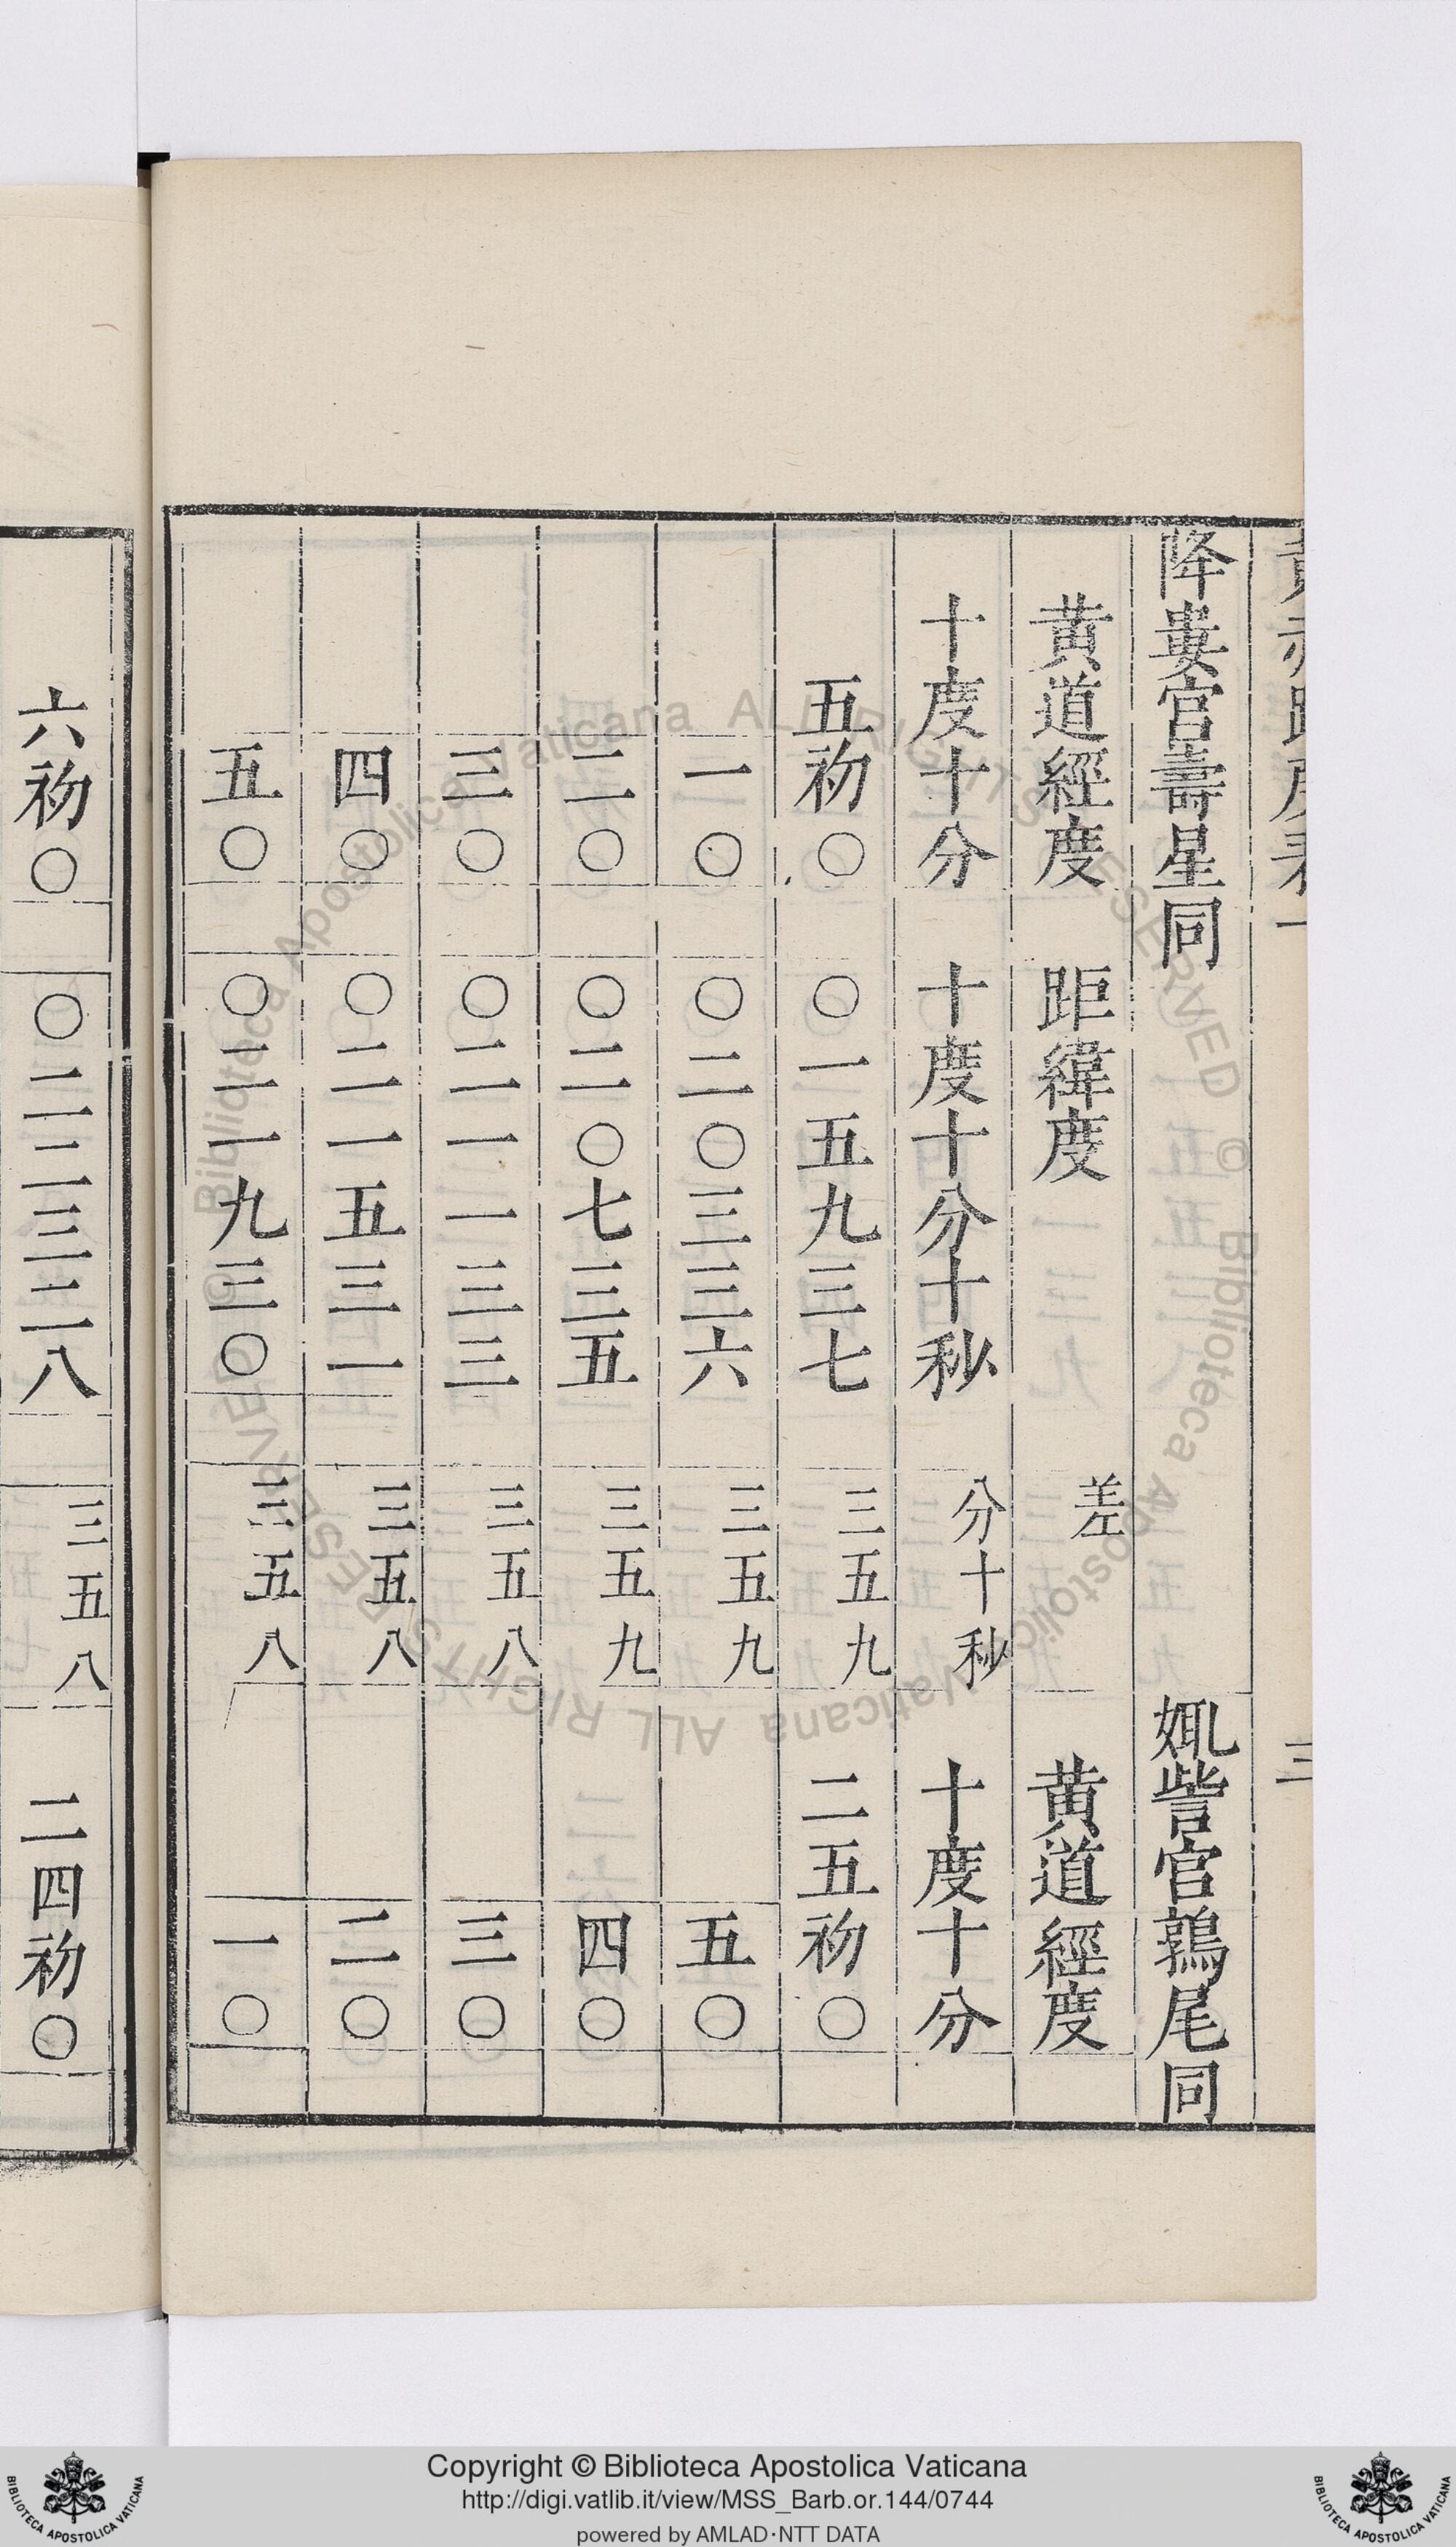 降婁宮壽星同 娵訾宮鶉尾同
黃道經度 距緯度 差 黃道經度
十度十分 十度十分十秒 分十秒 十度十分
五初〇 〇一五九三七 三五九 二五初〇
一〇 〇二〇三三六 三五九 五〇
二〇 〇二〇七三五 三五九 四〇
三〇 〇二一一三三 三五八 三〇
四〇 〇二一五三一 三五八 二〇
五〇 〇二一九三〇 三五八 一〇
六初〇 〇二二三二八 三五八 二四初〇
Bibliotheca Apostolica Vaticana ALL RIGHTS RESERVED ©
Copyright © Biblioteca Apostolica Vaticana
http://digi.vatlib.it/view/MSS_Barb.or.144/0744
powered by AMLAD·NTT DATA
BIBLIOTECA APOSTOLICA VATICANA
BIBLIOTECA APOSTOLICA VATICANA